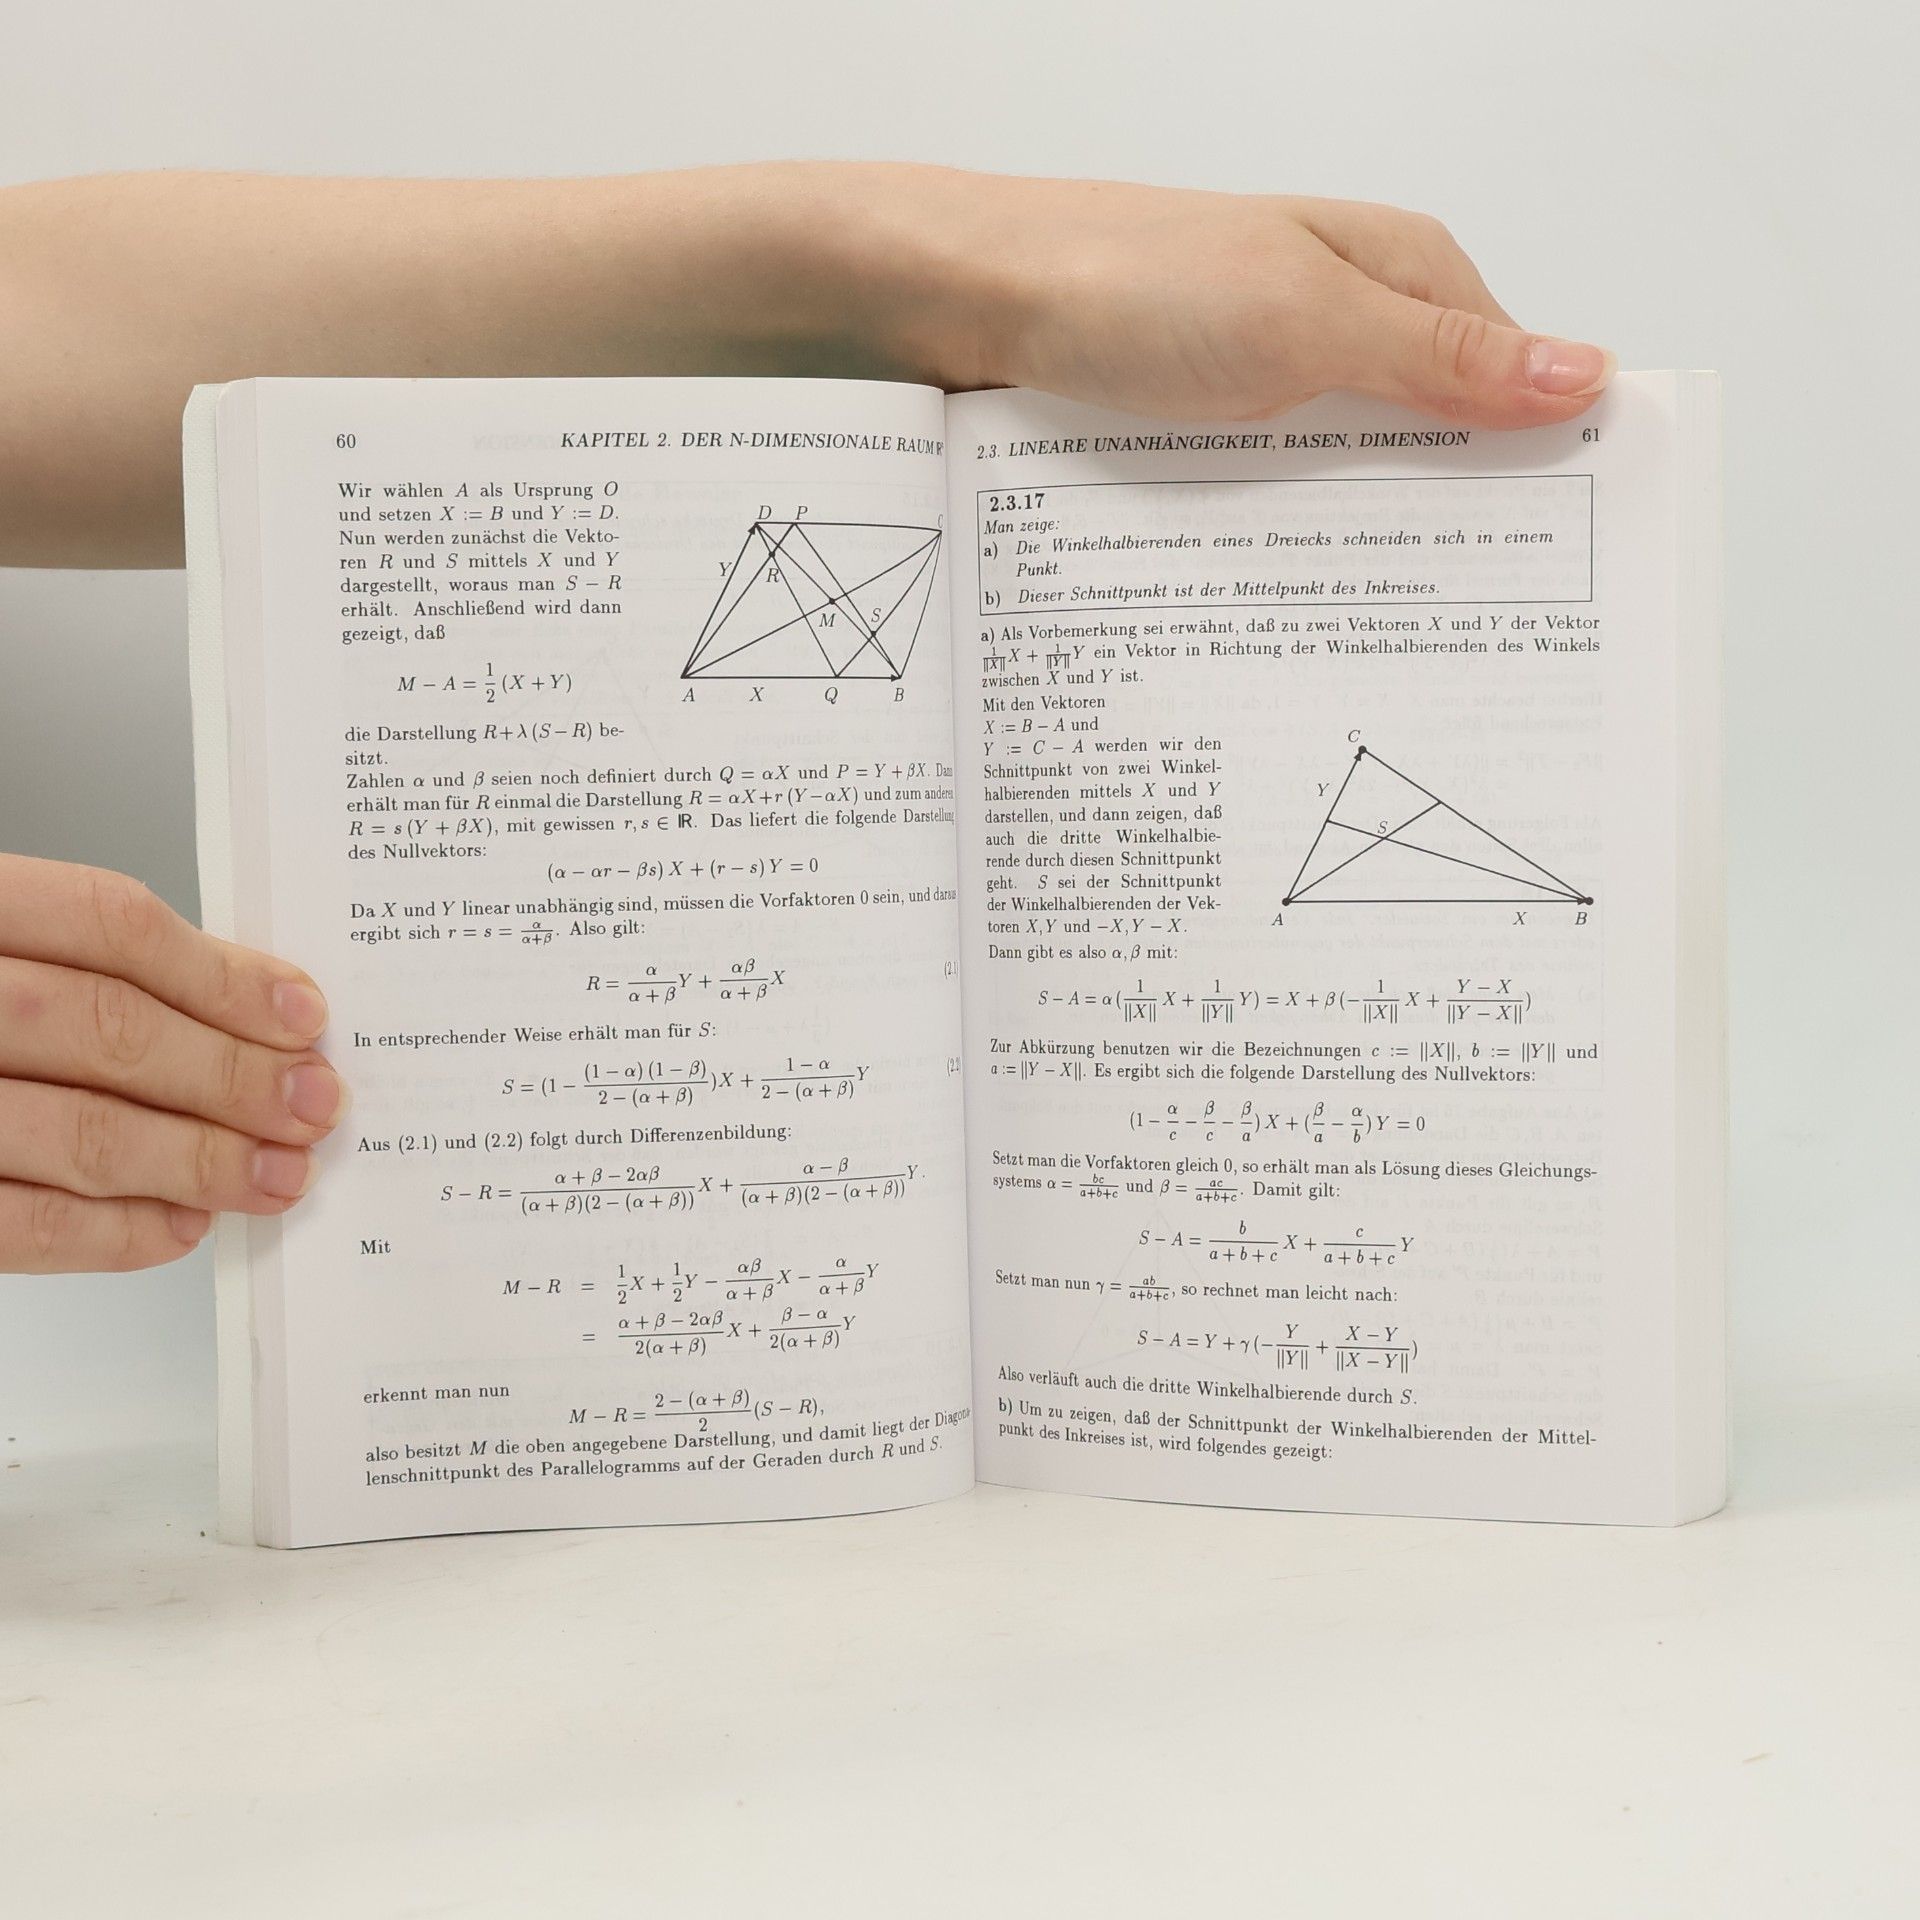 60 KAPITEL 2. DER N-DIMENSIONALE RAUM
Wir wählen A als Ursprung O
und setzen X := B und Y := D.
Nun werden zunächst die Vekto-
ren R und S mittels X und Y
dargestellt, woraus man S − R
erhält. Anschließend wird dann
gezeigt, daß
M − A = 1/2 (X + Y)
D P C
Y R
M S
A X Q B
die Darstellung R + λ (S − R) be-
sitzt.
Zahlen α und β seien noch definiert durch Q = αX und P = Y + βX. Dann
erhält man für R einmal die Darstellung R = αX + r (Y − αX) und zum anderen
R = s (Y + βX), mit gewissen r, s ∈ ℝ. Das liefert die folgende Darstellung
des Nullvektors:
(α − αr − βs) X + (r − s) Y = 0
Da X und Y linear unabhängig sind, müssen die Vorfaktoren 0 sein, und daraus
ergibt sich r = s = α/(α+β). Also gilt:
R = α/(α + β) Y + αβ/(α + β) X (2.1)
In entsprechender Weise erhält man für S:
S = (1 − (1 − α) (1 − β)/(2 − (α + β)))X + (1 − α)/(2 − (α + β)) Y (2.2)
Aus (2.1) und (2.2) folgt durch Differenzenbildung:
S − R = (α + β − 2αβ)/((α + β)(2 − (α + β))) X + (α − β)/((α + β)(2 − (α + β))) Y.
Mit
M − R = 1/2 X + 1/2 Y − αβ/(α + β) X − α/(α + β) Y
= (α + β − 2αβ)/(2(α + β)) X + (β − α)/(2(α + β)) Y
erkennt man nun
M − R = (2 − (α + β))/2 (S − R),
also besitzt M die oben angegebene Darstellung, und damit liegt der Diagona-
lenschnittpunkt des Parallelogramms auf der Geraden durch R und S.
2.3. LINEARE UNANHÄNGIGKEIT, BASEN, DIMENSION 61
2.3.17
Man zeige:
a) Die Winkelhalbierenden eines Dreiecks schneiden sich in einem
Punkt.
b) Dieser Schnittpunkt ist der Mittelpunkt des Inkreises.
a) Als Vorbemerkung sei erwähnt, daß zu zwei Vektoren X und Y der Vektor
1/||X|| X + 1/||Y|| Y ein Vektor in Richtung der Winkelhalbierenden des Winkels
zwischen X und Y ist.
Mit den Vektoren
X := B − A und
Y := C − A werden wir den
Schnittpunkt von zwei Winkel-
halbierenden mittels X und Y
darstellen, und dann zeigen, daß
auch die dritte Winkelhalbie-
rende durch diesen Schnittpunkt
geht. S sei der Schnittpunkt
der Winkelhalbierenden der Vek-
toren X, Y und −X, Y − X.
C
Y
S
A X B
Dann gibt es also α, β mit:
S − A = α (1/||X|| X + 1/||Y|| Y) = X + β (−1/||X|| X + (Y − X)/||Y − X||)
Zur Abkürzung benutzen wir die Bezeichnungen c := ||X||, b := ||Y|| und
a := ||Y − X||. Es ergibt sich die folgende Darstellung des Nullvektors:
(1 − α/c − β/c − β/a) X + (β/a − α/b) Y = 0
Setzt man die Vorfaktoren gleich 0, so erhält man als Lösung dieses Gleichungs-
systems α = bc/(a+b+c) und β = ac/(a+b+c). Damit gilt:
S − A = b/(a + b + c) X + c/(a + b + c) Y
Setzt man nun γ = ab/(a+b+c), so rechnet man leicht nach:
S − A = Y + γ (−Y/||Y|| + (X − Y)/||X − Y||)
Also verläuft auch die dritte Winkelhalbierende durch S.
b) Um zu zeigen, daß der Schnittpunkt der Winkelhalbierenden der Mittel-
punkt des Inkreises ist, wird folgendes gezeigt: